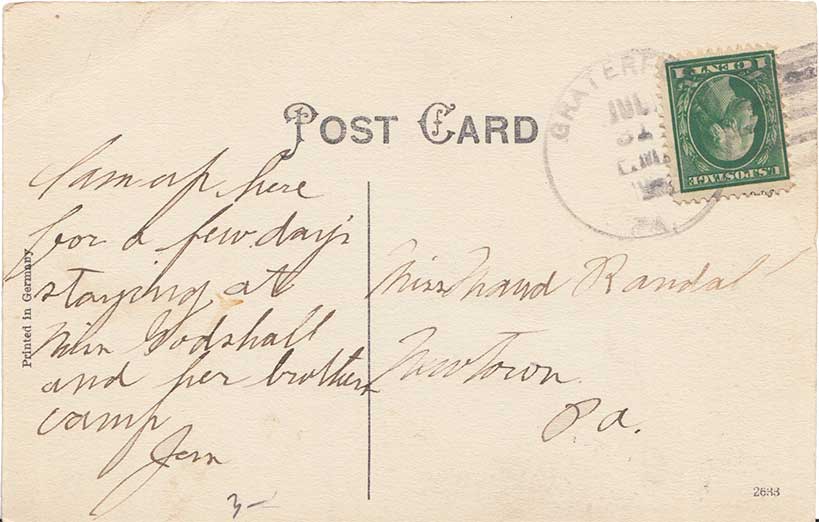 POST CARD
I am up here
for a few days
staying at
Miss Godshall
and her brothers
camp
Jem
3-
Printed in Germany
GRATERF
JUL
31
PA.
1 CENT 1
U.S. POSTAGE
Miss Maud Randal
Newtown
Pa.
2633